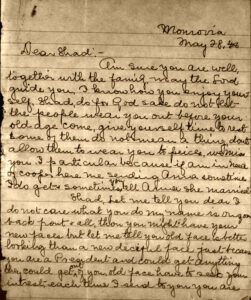 Monrovia
May 28,
Dear Shad:-
Am sure you are well
together with the family may the Lord
guide you, I know how you enjoy your
self, Shad do for God sake do not let
the people wear you out before your
old age come, give yourself time to rest
some of them do not mean a thing don't
allow them to wear you to pieces,
you I particular because if am in
of cooper here me sending Anna something
I do get sometime, Tell Anna she married
Shad, Let me tell you dear I
do not care what you do my name is on your
first call, thou you might have your
new faces but let me tell you old face is better
looking than a new deceitful face, just because
you are a President and could get anything
the could get, if you old face have to seek your
interest, each time I send to you you are